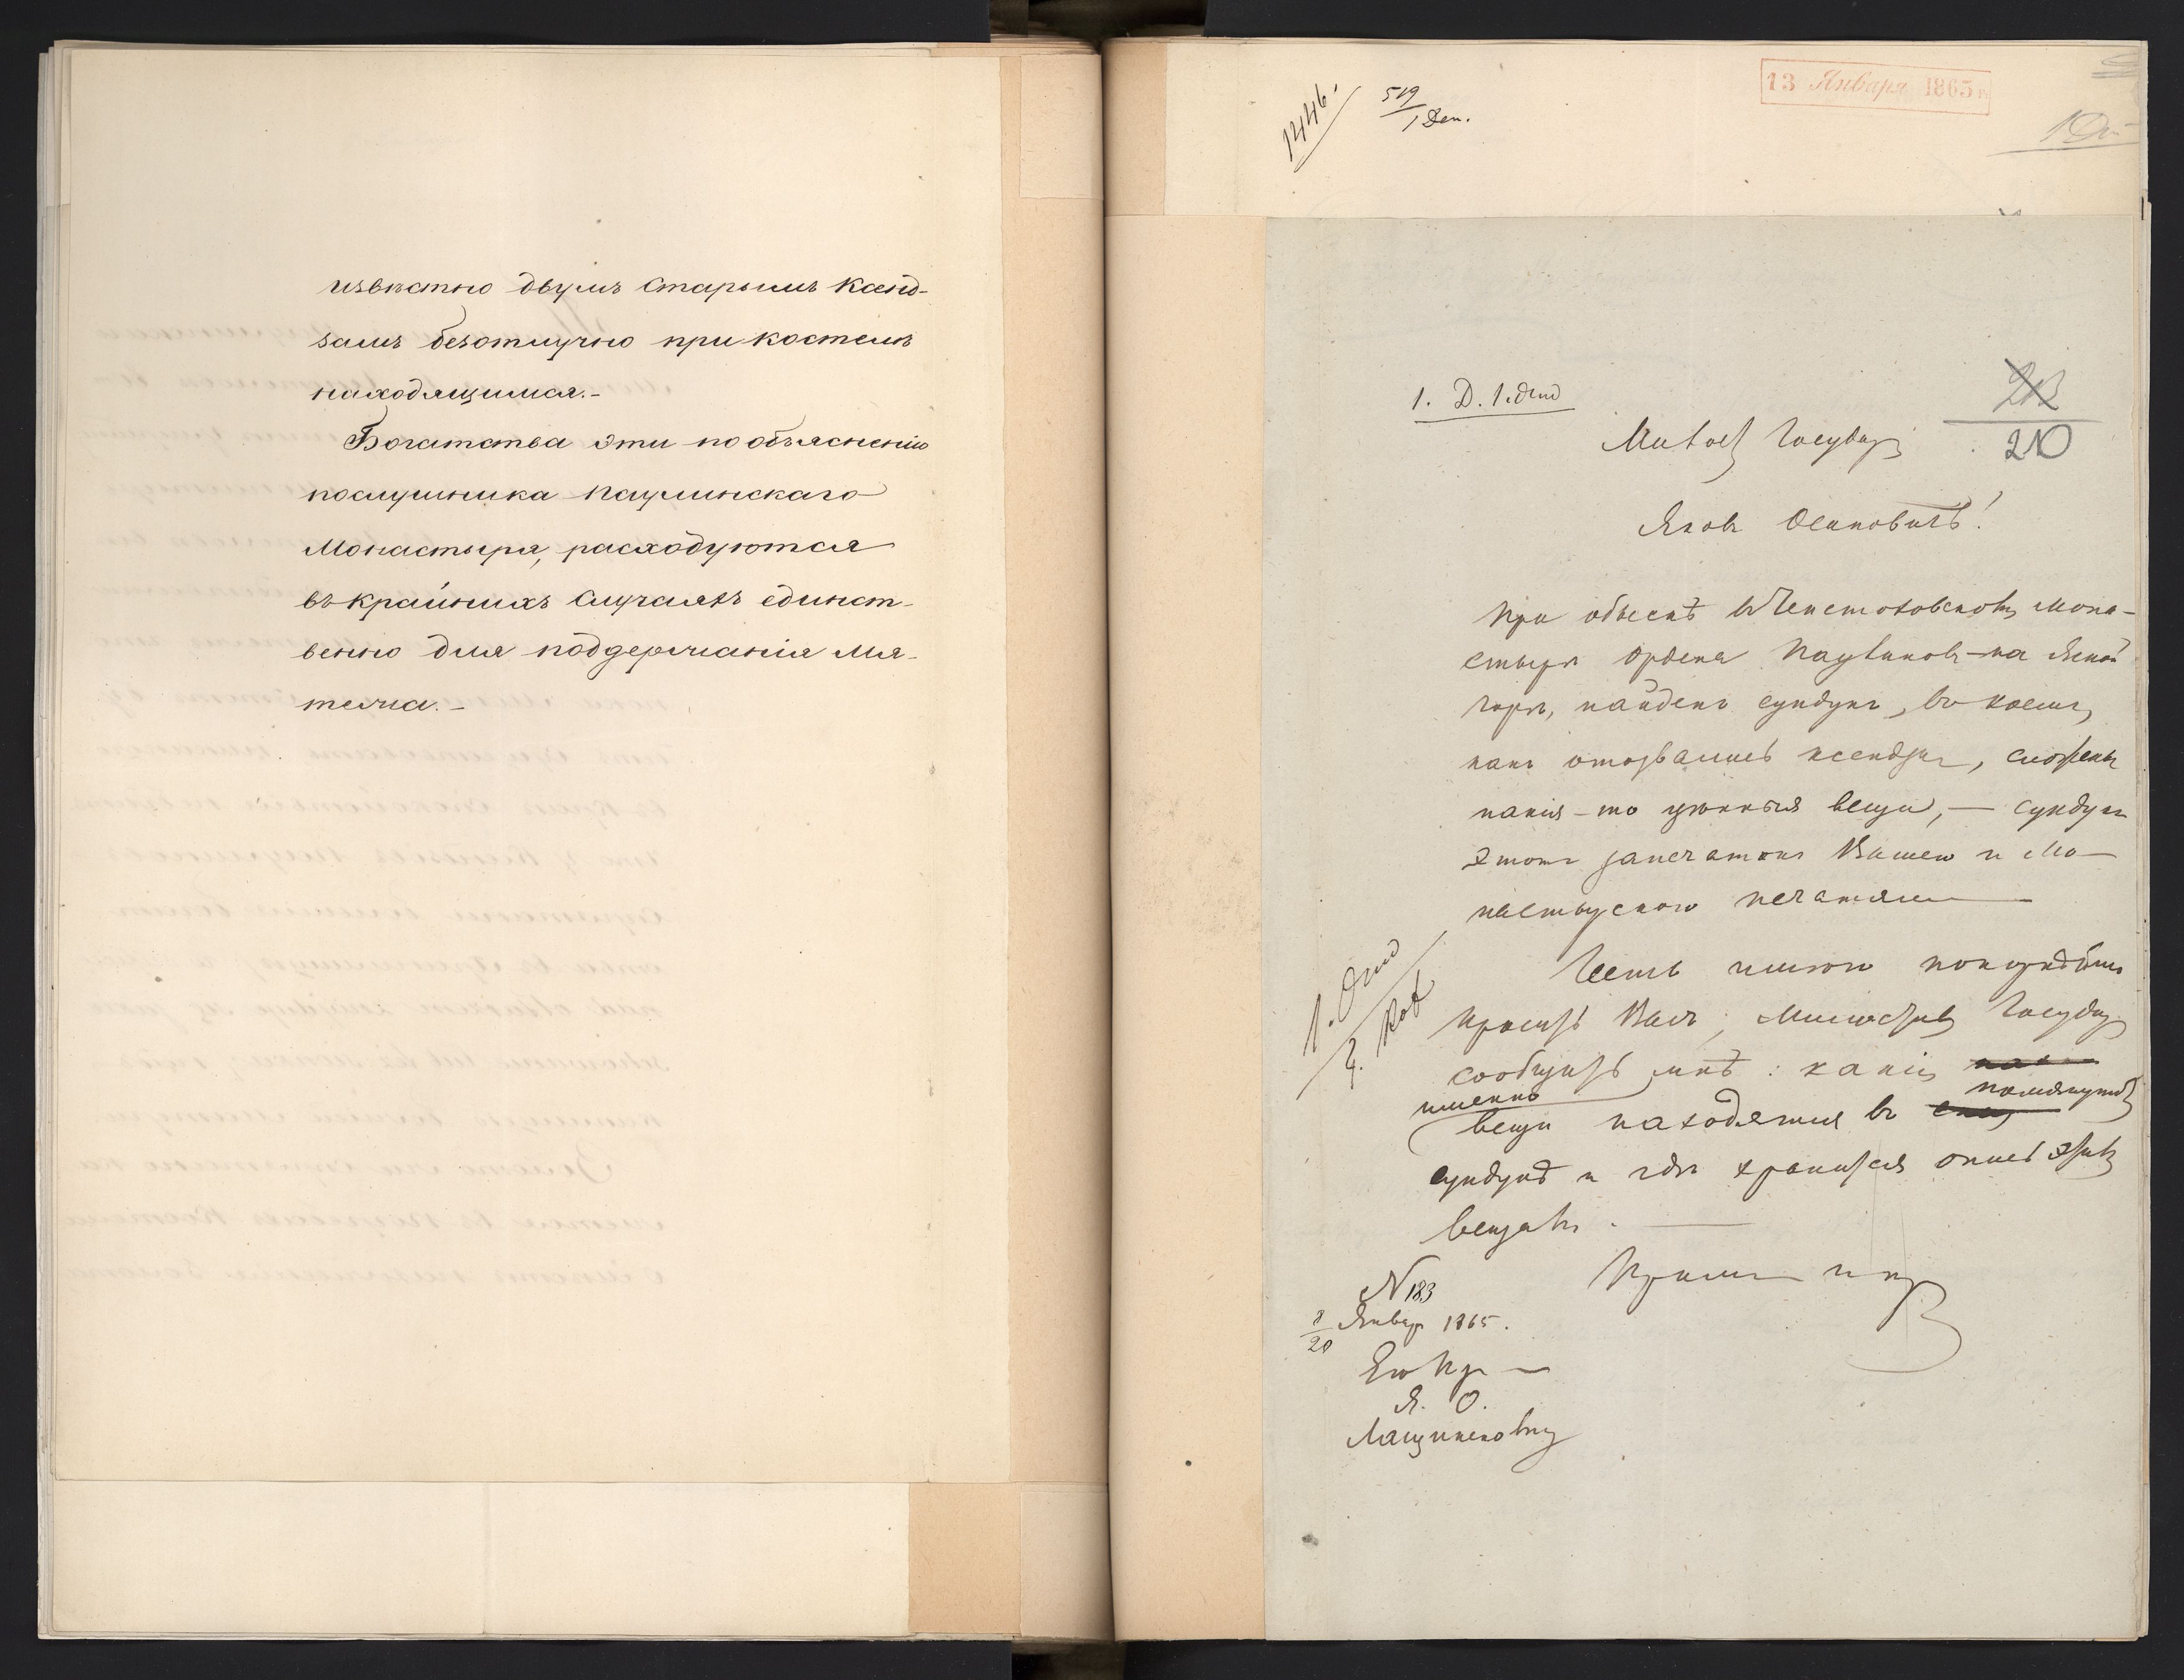 извѣстно двумъ старымъ Ксенд-
замъ безотлучно при костелѣ
находящимся.-
Богатства эти по объясненію
послушника Паулинскаго
Монастыря, расходуются
въ крайнихъ случаяхъ единст-
венно для поддержанія мя-
тежа.-
13 Января 1865
1446.
519
1 Деп.
1. Д. 1.
213
210
Милост Государ
Яковъ Осиповичъ!
При обыскѣ въ Ченстоховскомъ мона-
стырѣ Ордена Паулиновъ-на Ясной
горѣ, найденъ сундукъ, въ коемъ,
какъ отозвались ксендзы, сложены
какія-то цѣнныя вещи,- сундукъ
этотъ запечатанъ Вашею и Мо-
настырскою печатями
Честь имѣю покорнѣйше
просить Васъ, Милостив Государ
сообщить мнѣ: какія
именно
помянутомъ
вещи находятся въ
сундукѣ и гдѣ хранится опись этимъ
вещамъ.
Прими и пр
N 183
8/20 Январ 1865.
Его Пр-
Я. О.
Лащинскому